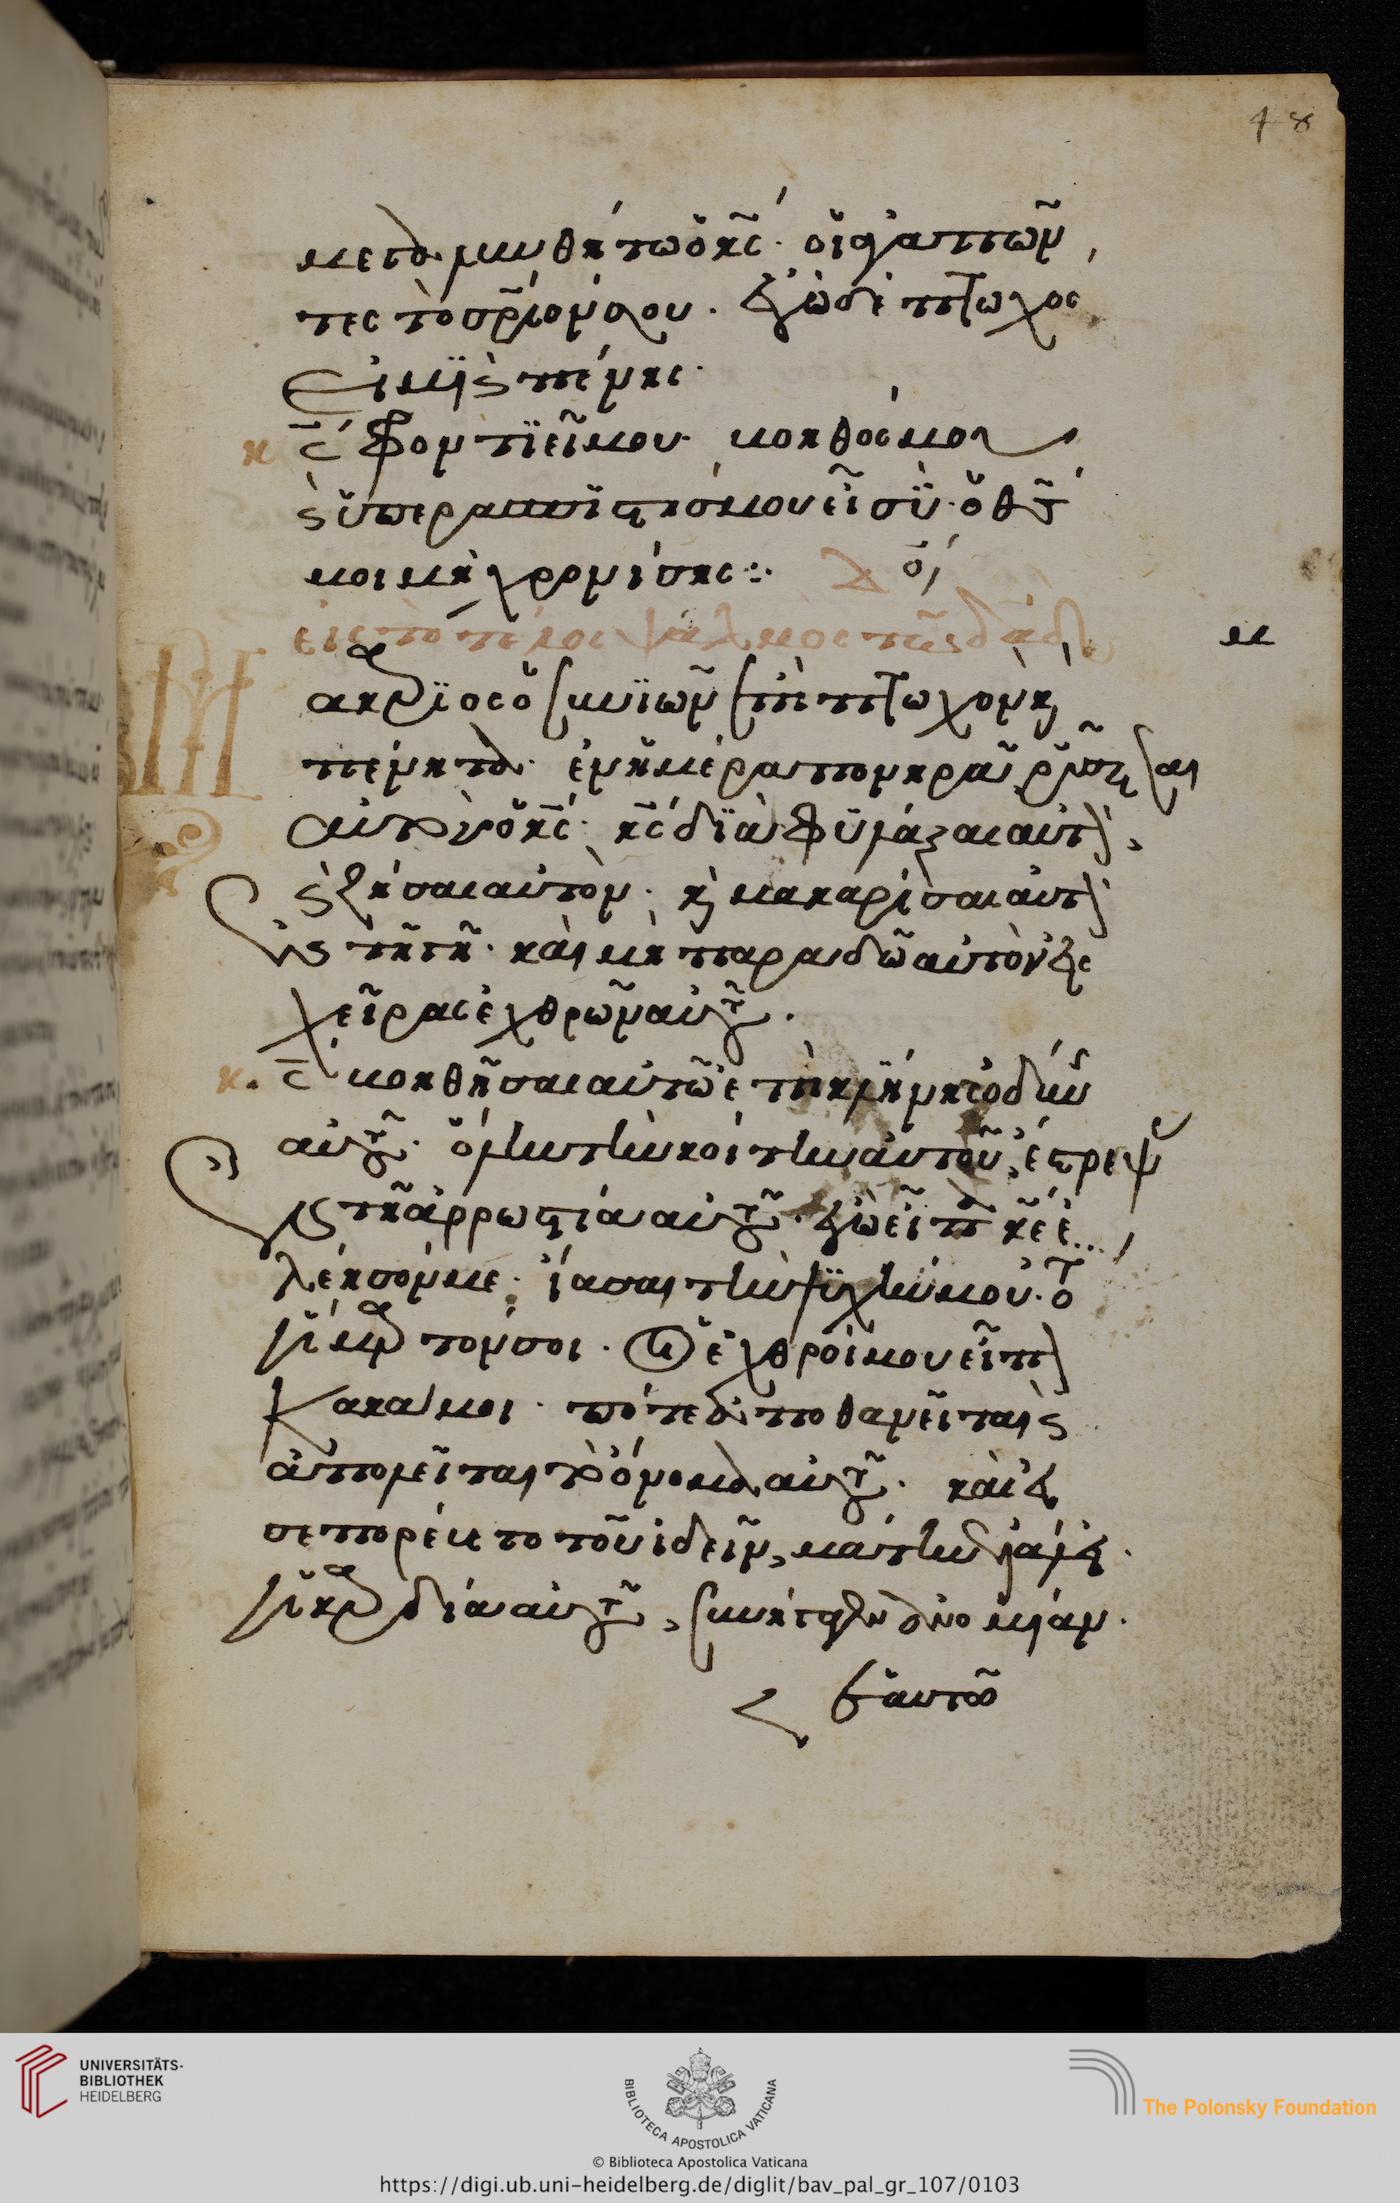 48
μεγαλυνθήτω ὁ κς. οἱ ἀγαπῶν
τες τὸ σρίον σου. ἐγὼ δὲ πτωχος
εἰμὶ καὶ πένης.
κς φρόντιεῖ μου. βοηθός μου
καὶ ὑπερασπιστής μου εἶ σὺ. ὁ θς
μοι μὴ χρονίσης:
εἰς τὸ τέλος ψαλμὸς τῶ δαδ
μ
ακάριος ὁ συνιῶν ἐπὶ πτωχὸν κ
πένητα. ἐν ἡμέρα πονηρᾶ ῥύσεται
αὐτὸν ὁ κς. κς διαφυλάξαι αὐτὸν,
καὶ ζήσαι αὐτὸν. κ μακαρίσαι αὐτὸν
ἐν τῆ γῆ. καὶ μὴ παραδῶ αὐτὸν εἰς
χεῖρας ἐχθρῶν αὐτοῦ.
κς βοηθήσαι αὐτῶ ἐπὶ κλίνης ὀδύνης
αὐτοῦ. ὅλην τὴν κοίτην αὐτοῦ, ἔστρεψας
ἐν τῆ ἀρρωστία αὐτοῦ. ἐγὼ εἶπα κε ἐ
λέησόν με. ἴασαι τὴν ψυχήν μου. ὅτι
ἥμαρτόν σοι. οἱ ἐχθροί μου εἶπον
κακά μοι. πότε ἀποθανεῖται καὶ
ἀπολεῖται τὸ ὄνομα αὐτοῦ. καὶ εἰ
σεπορεύετο τοῦ ἰδεῖν, μάτην ἐλάλει.
ἡ καρδία αὐτοῦ, συνήγαγεν ἀνομίαν.
ἑαυτῶ
UNIVERSITÄTS-
BIBLIOTHEK
HEIDELBERG
BIBLIOTECA APOSTOLICA VATICANA
The Polonsky Foundation
© Biblioteca Apostolica Vaticana
https://digi.ub.uni-heidelberg.de/diglit/bav_pal_gr_107/0103